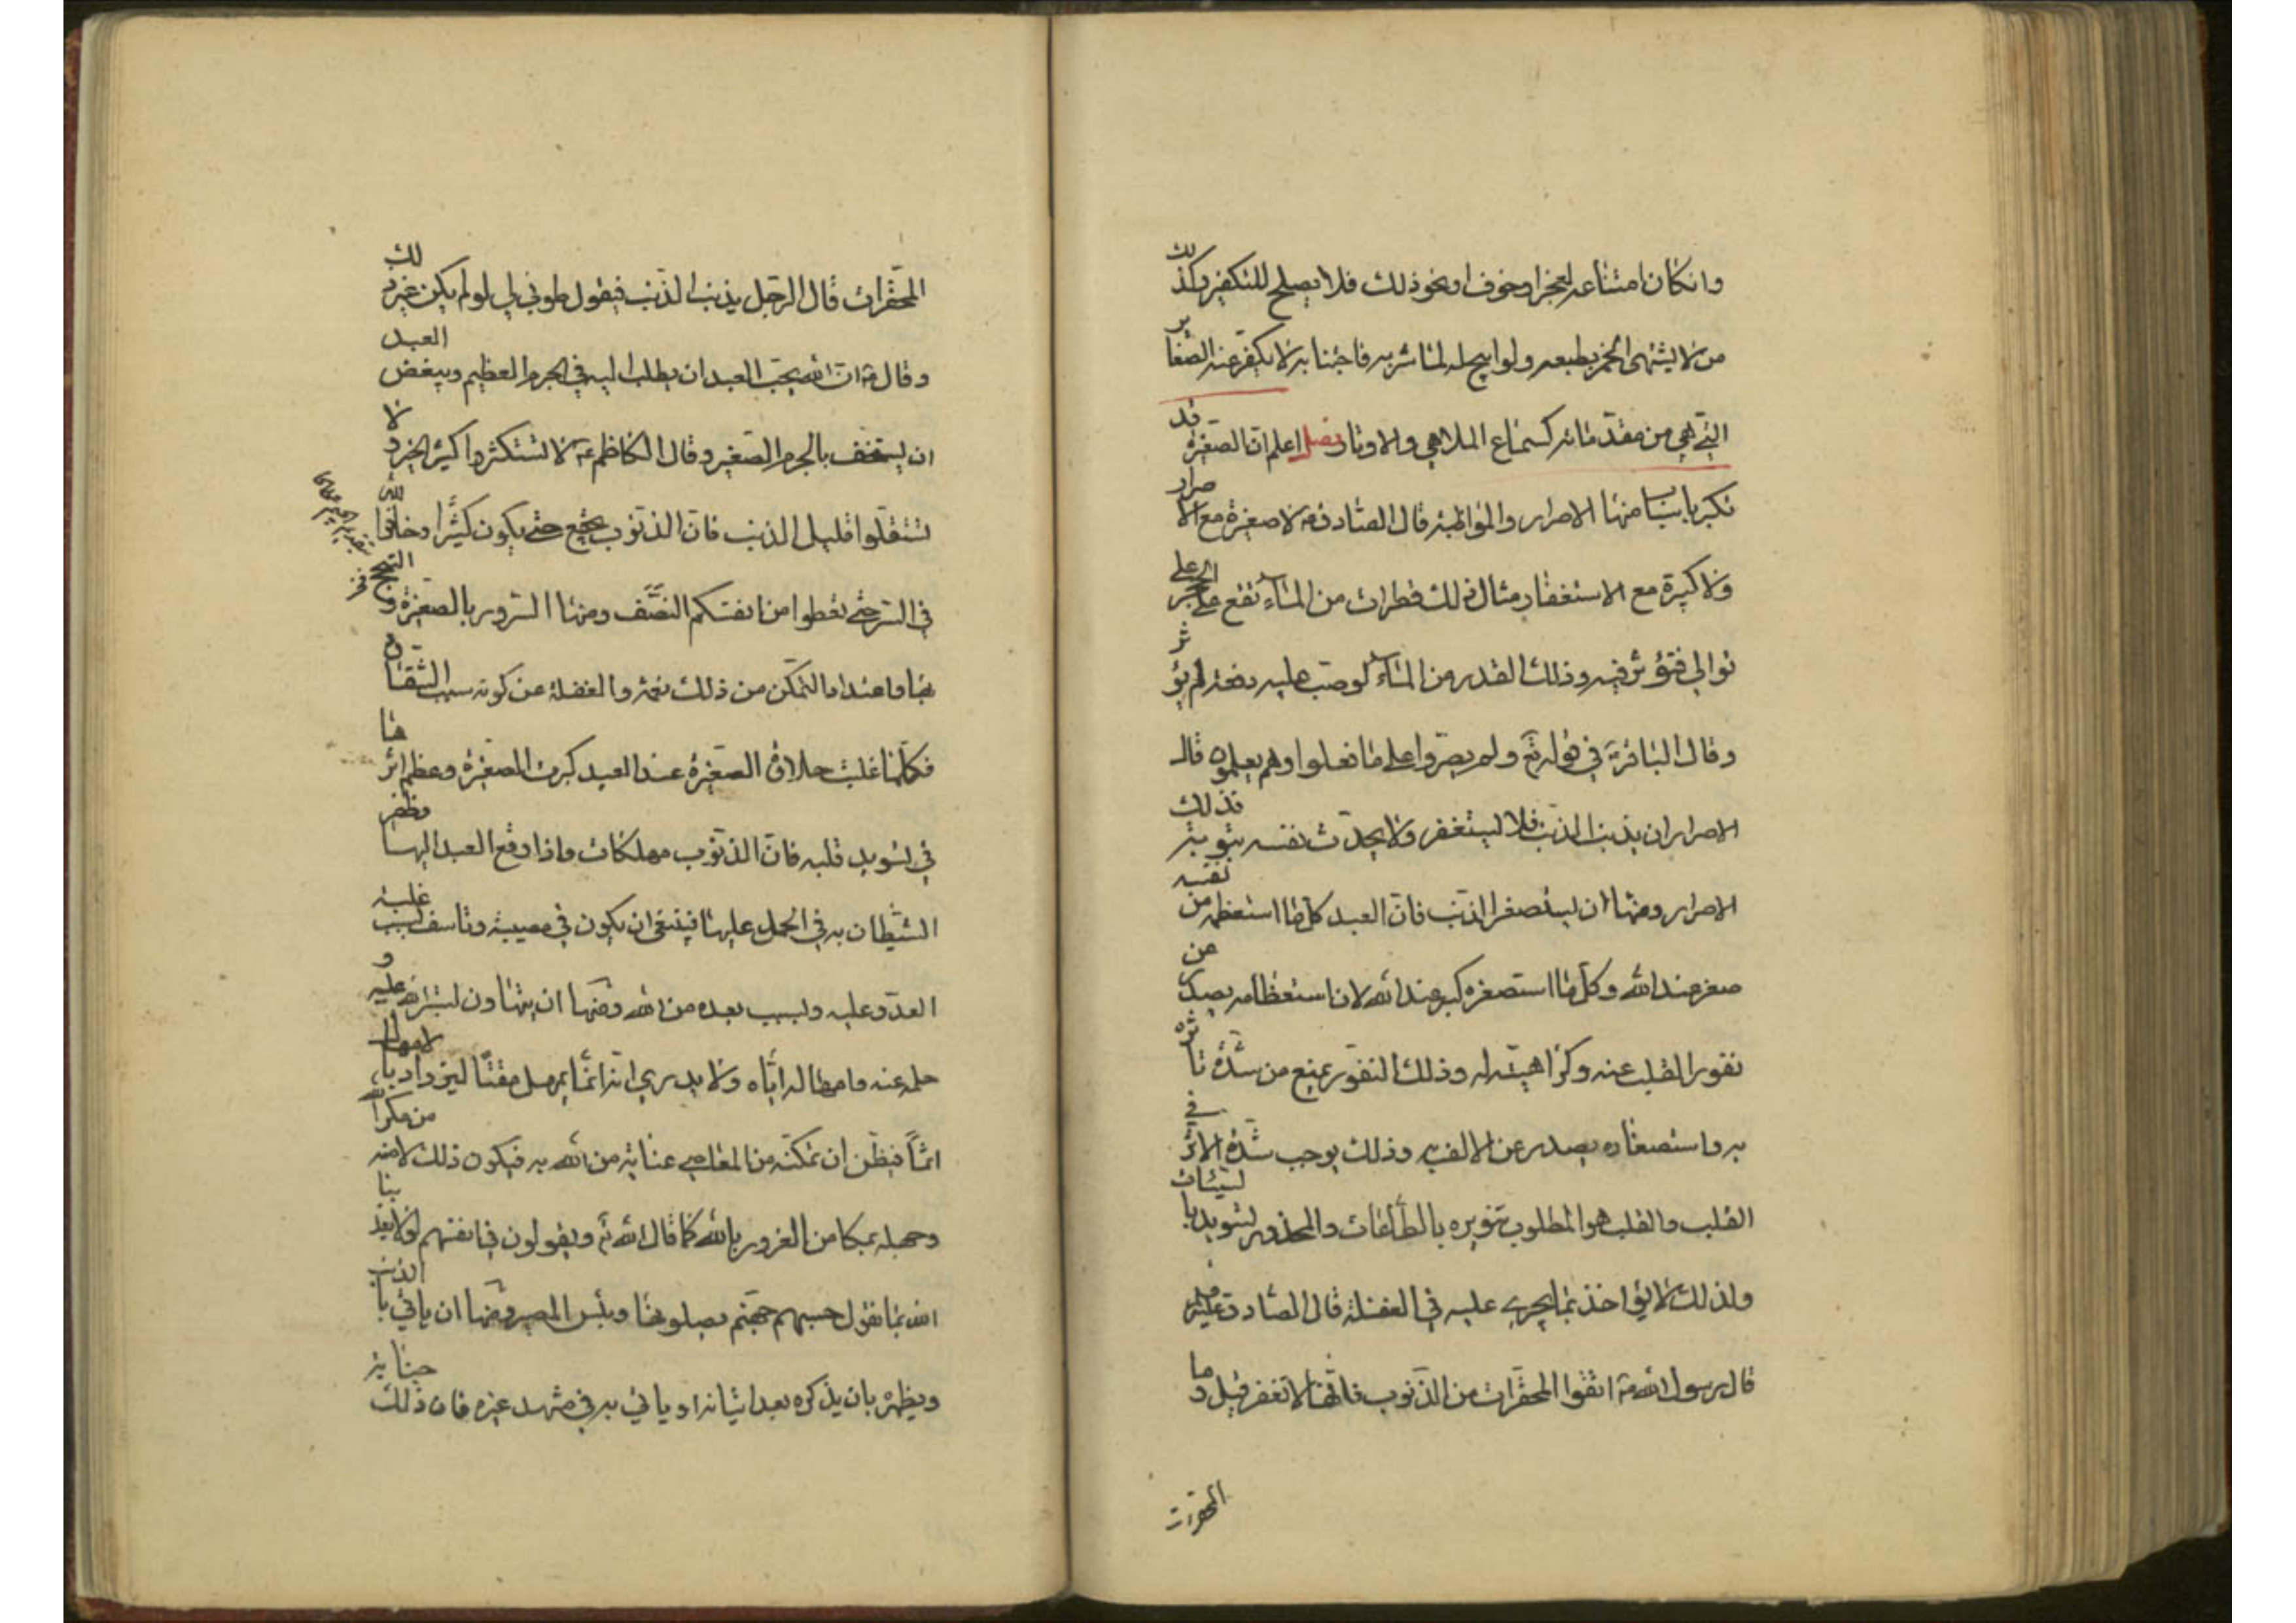 وانكان امتناعه لعجز او خوف او نحو ذلك فلا يصلح للتكفير وكذلك
من لا يشتهى الخمر بطبعه ولو ابيح له لما شربه فاجتنابه لا يكفر عنه الصغاير
التي هي من مقدماته كسماع الملاهي والاوتار فصل اعلم ان الصغيرة قد
تكبر باسباب منها الاصرار والمواظبة قال الصادق ع لا صغيرة مع الاصرار
ولا كبيرة مع الاستغفار ومثال ذلك قطرات من الماء تقع على الحجر على
توالي فتؤثر فيه وذلك القدر من الماء لو صب عليه دفعة لم يؤثر
وقال الباقر ع في قوله تع ولم يصروا على ما فعلوا وهم يعلمون قال
الاصرار ان يذنب الذنب فلا يستغفر ولا يحدث نفسه بتوبة فذلك
الاصرار ومنها ان يستصغر الذنب فان العبد كلما استعظمه من نفسه
صغر عند الله وكلما استصغره كبر عند الله لان استعظامه يصدر عن
نفور القلب عنه وكراهيته له وذلك النفور يمنع من شدة تاثره
به واستصغاره يصدر عن الالف به وذلك يوجب شدة الاثر في
القلب والقلب هو المطلوب تنويره بالطاعات والمحذور تسويده بالسيئات
ولذلك لا يؤاخذ بما يجري عليه في الغفلة قال الصادق عليه
قال رسول الله ص اتقوا المحقرات من الذنوب فانها لا تغفر قيل وما
المحقرات
المحقرات قال الرجل يذنب الذنب فيقول طوبى لي لو لم يكن غير ذلك
وقال ص ان الله يحب العبد ان يطلب اليه في الجرم العظيم ويبغض العبد
ان يستخف بالجرم الصغير وقال الكاظم ع لا تستكثروا كثير الخير ولا
تستقلوا قليل الذنب فان الذنوب يجتمع حتى يكون كثيرا وخافوا الله
في السر حتى تعطوا من انفسكم النصف ومنها السرور بالصغيرة و
بها واعتداد التمكن من ذلك نعمة والغفلة عن كونه سبب الشقاة
فكلما غلبت حلاوة الصغيرة عند العبد كبرت الصغيرة وعظم اثرها
في تسويد قلبه فان الذنوب مهلكات واذا دفع العبد اليها وظفر
الشيطان به في الحمل عليها فينبغي ان يكون في مصيبة وتاسف بسبب غلبة
العدو عليه وبسبب بعده من الله ومنها ان يتهاون بستر الله عليه و
حلمه عنه وامهاله اياه ولا يدري انه انما يمهل مقتا ليزداد بالامهال
اثما فيظن ان تمكنه من المعاصي عناية من الله به فيكون ذلك لامنه من مكر الله
وجهله بمكامن الغرور بالله كما قال الله تع ويقولون في انفسهم لولا يعذبنا
الله بما نقول حسبهم جهنم يصلونها وبئس المصير ومنها ان ياتي بالذنب
ويظهره بان يذكره بعد اتيانه او ياتي به في مشهد غيره فان ذلك جناية